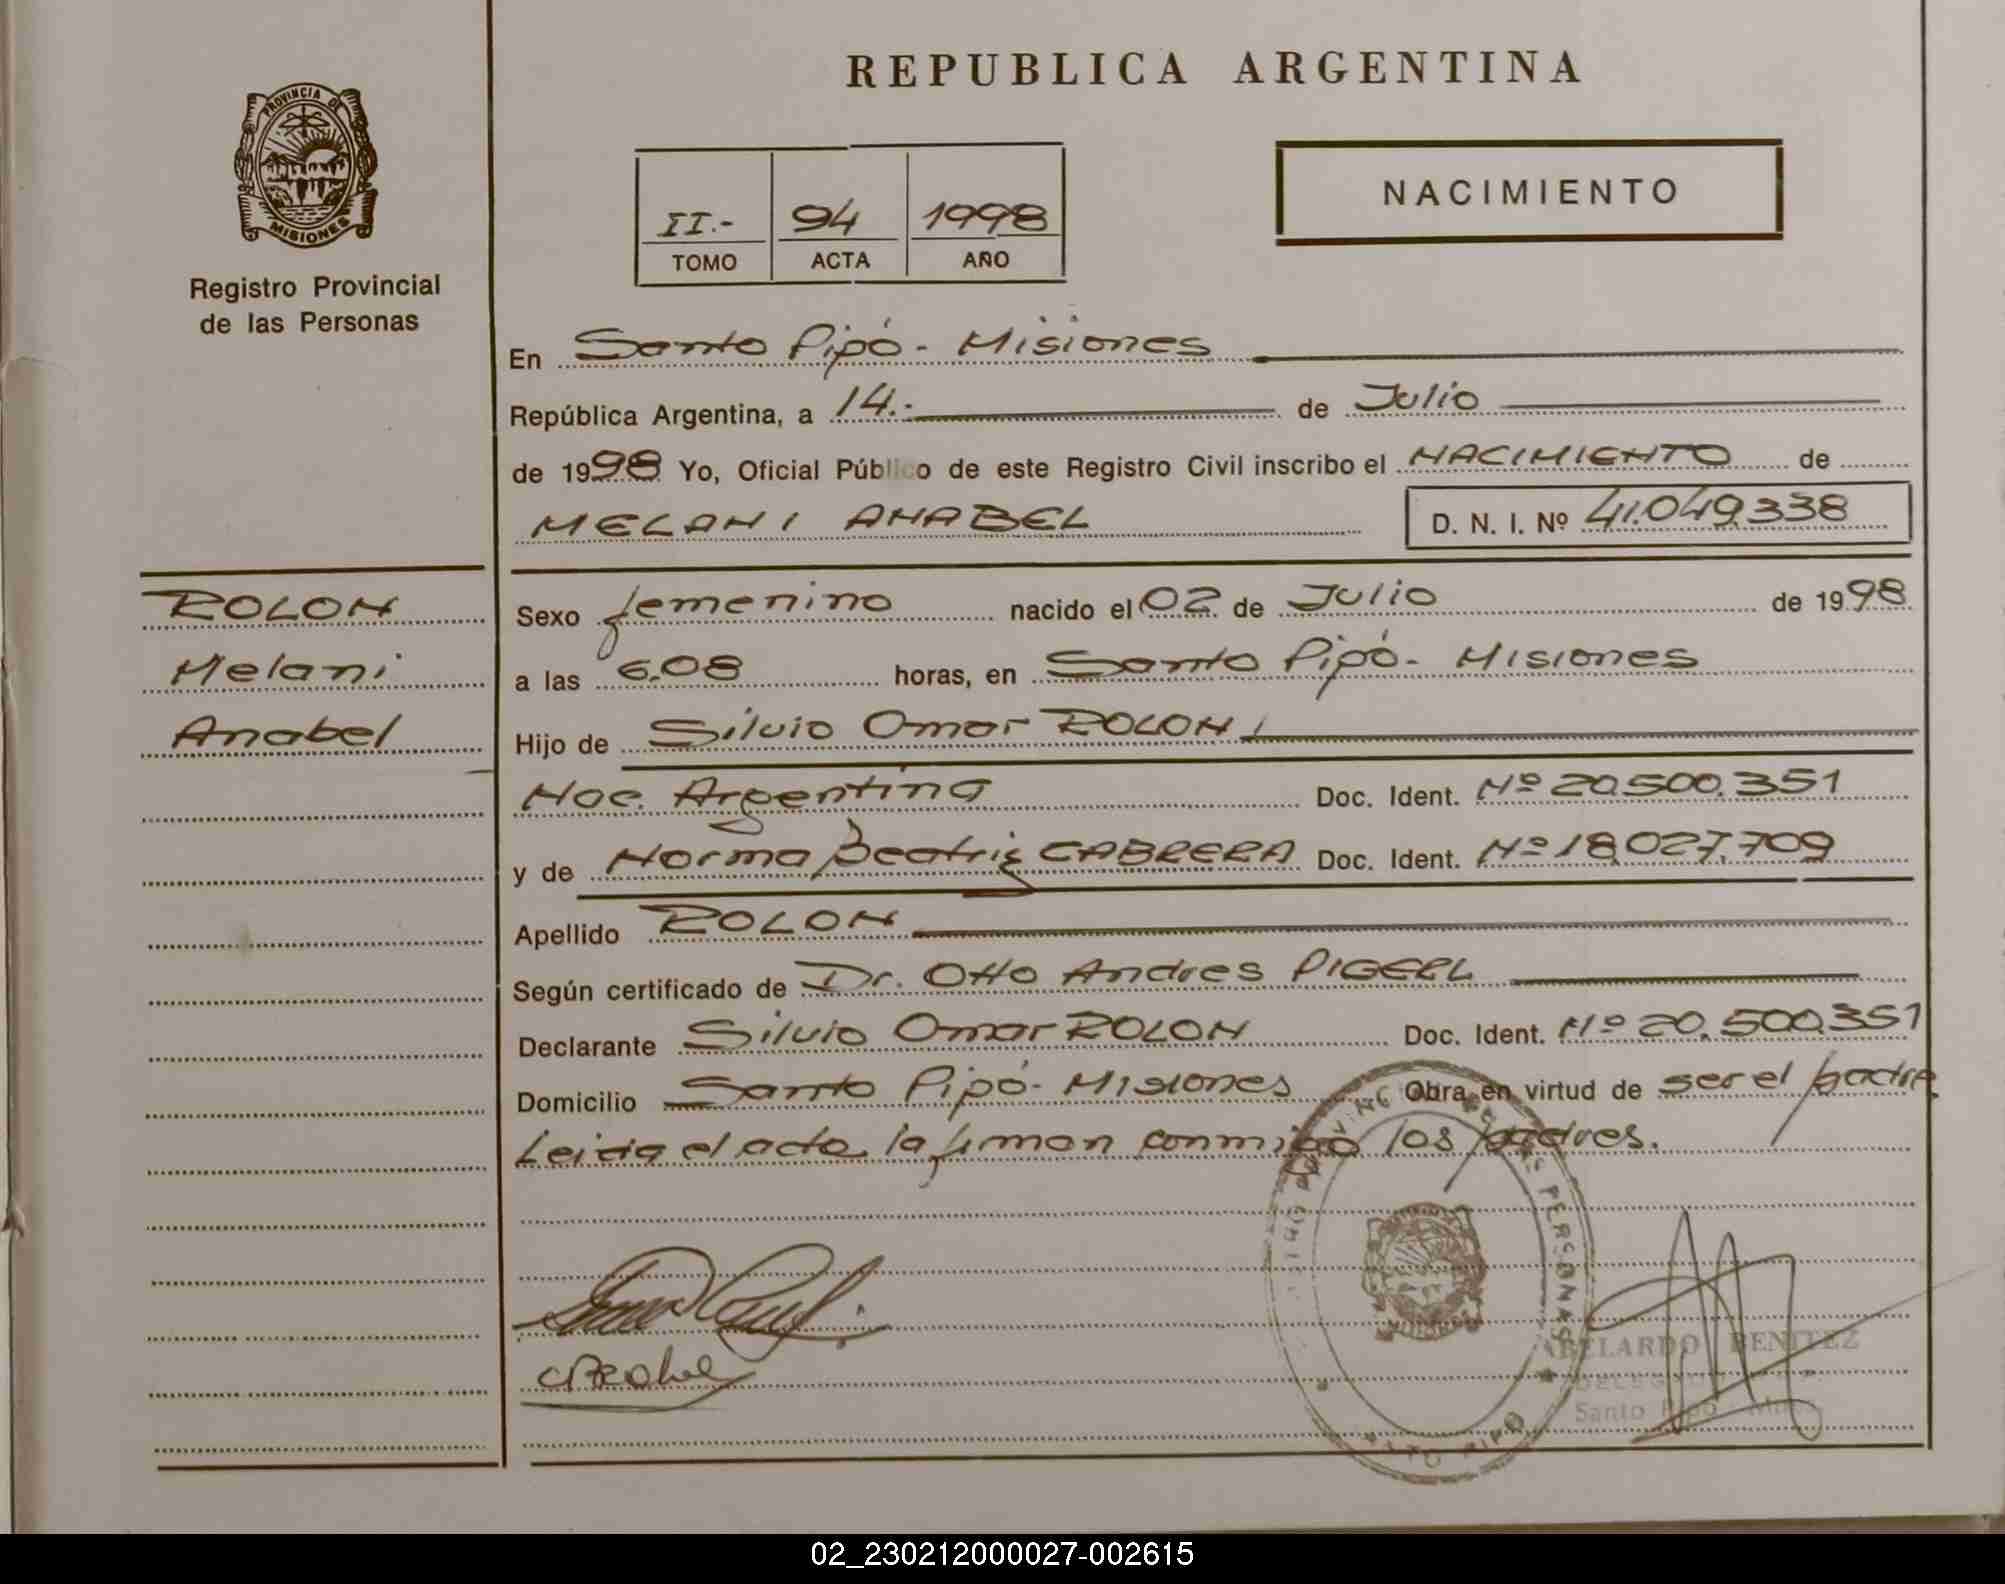 REPUBLICA ARGENTINA
PROVINCIA DE
MISIONES
Registro Provincial
de las Personas
NACIMIENTO
II.- 94 1998
TOMO ACTA AÑO
En Santo Pipó - Misiones
República Argentina, a 14.- de Julio
de 1998 Yo, Oficial Público de este Registro Civil inscribo el NACIMIENTO de
MELANI ANABEL D. N. I. Nº 41.049.338
ROLON
Melani
Anabel
Sexo femenino nacido el 02 de Julio de 1998
a las 6.08 horas, en Santo Pipó - Misiones
Hijo de Silvio Omar ROLON
Nac. Argentina Doc. Ident. Nº 20.500.351
y de Norma Beatriz CABRERA Doc. Ident. Nº 18.027.709
Apellido ROLON
Según certificado de Dr. Otto Andres PIGERL
Declarante Silvio Omar ROLON Doc. Ident. Nº 20.500.351
Domicilio Santo Pipó - Misiones Obra en virtud de ser el padre
Leida el acta la firman conmigo los padres.
PERSONAS
ABELARDO BENITEZ
Santo Pipó
02_230212000027-002615